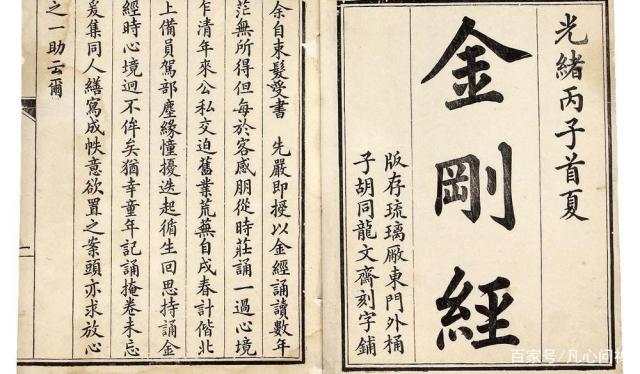 光緒丙子首夏
金剛經
版存琉璃厰東門外桶
子胡同龍文齋刻字鋪
余自束髮受書 先嚴即授以金經誦讀數年
茫無所得但每於客感朋從時莊誦一過心境
乍清年來公私交迫舊業荒蕪自戌春計偕北
上備員駕部塵緣憧擾迭起循生回思持誦金
經時心境迥不侔矣猶幸童年記誦掩卷未忘
爰集同人繕寫成帙意欲置之案頭亦求放心
之一助云爾
百家号/凡心问